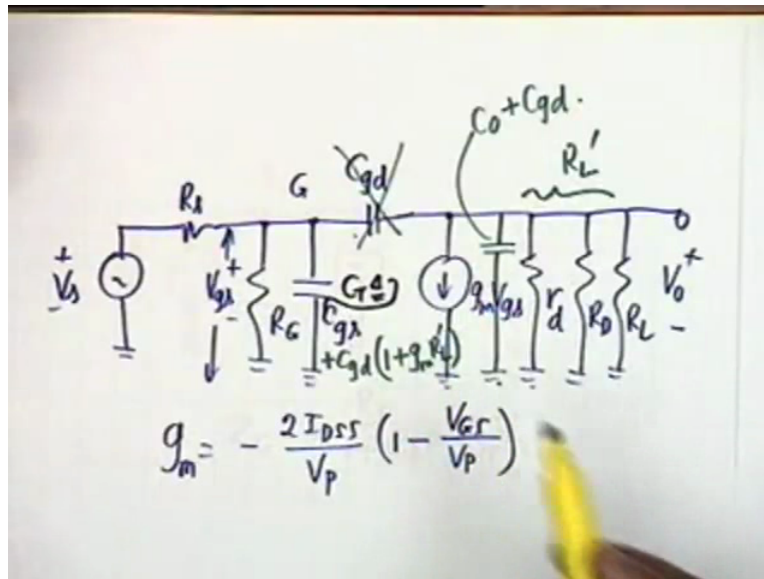 C₀+Cgd.
R_L′
G
Cgd
R_s
+
V_s
-
V_gs
+
-
R_G
C_T ≜
C_gs
+C_gd(1+g_m R_L′)
g_m V_gs
r_d
R_D
R_L
+
V₀
-
g_m = - 2 I_DSS / V_P (1 - V_GS / V_P)